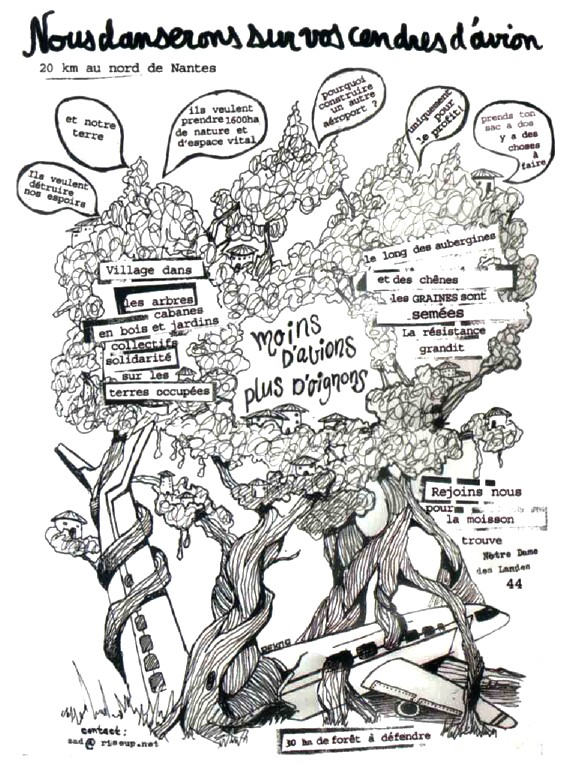 Nous danserons sur vos cendres d'avion
20 km au nord de Nantes
et notre
terre
ils veulent
prendre 1600ha
de nature et
d'espace vital
pourquoi
construire
un autre
aéroport ?
uniquement
pour
le profit!
prends ton
sac a dos
y a des
choses
à
faire
Ils veulent
détruire
nos espoirs
Village dans
les arbres
cabanes
en bois et jardins
collectifs
solidarité
sur les
terres occupées
moins
D'avions
plus D'oignons
le long des aubergines
et des chênes
les GRAINES sont
semées
La résistance
grandit
Rejoins nous
pour
la moisson
trouve
Notre Dame
des Landes
44
contact:
zad@riseup.net
30 ha de forêt à défendre